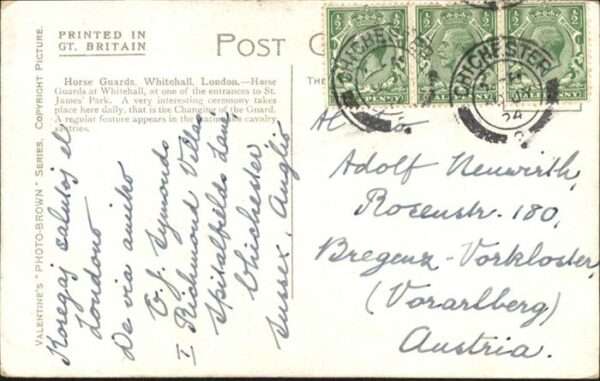 PRINTED IN
GT. BRITAIN
POST
Horse Guards, Whitehall, London.—Horse
Guards at Whitehall, at one of the entrances to St.
James' Park. A very interesting ceremony takes
place here daily, that is the Changing of the Guard.
A regular feature appears in the cavalry
sentries.
VALENTINE'S "PHOTO-BROWN" SERIES. COPYRIGHT PICTURE.
Koregaj salutoj el
Londono
De via amiko
J. Symonds
1 Richmond Villas
Spitalfields Lane
Chichester
Sussex, Anglio
CHICHESTER
CHICHESTER
24
Al
Adolf Neuwirth,
Rosenstr. 180,
Bregenz-Vorkloster,
(Vorarlberg)
Austria.